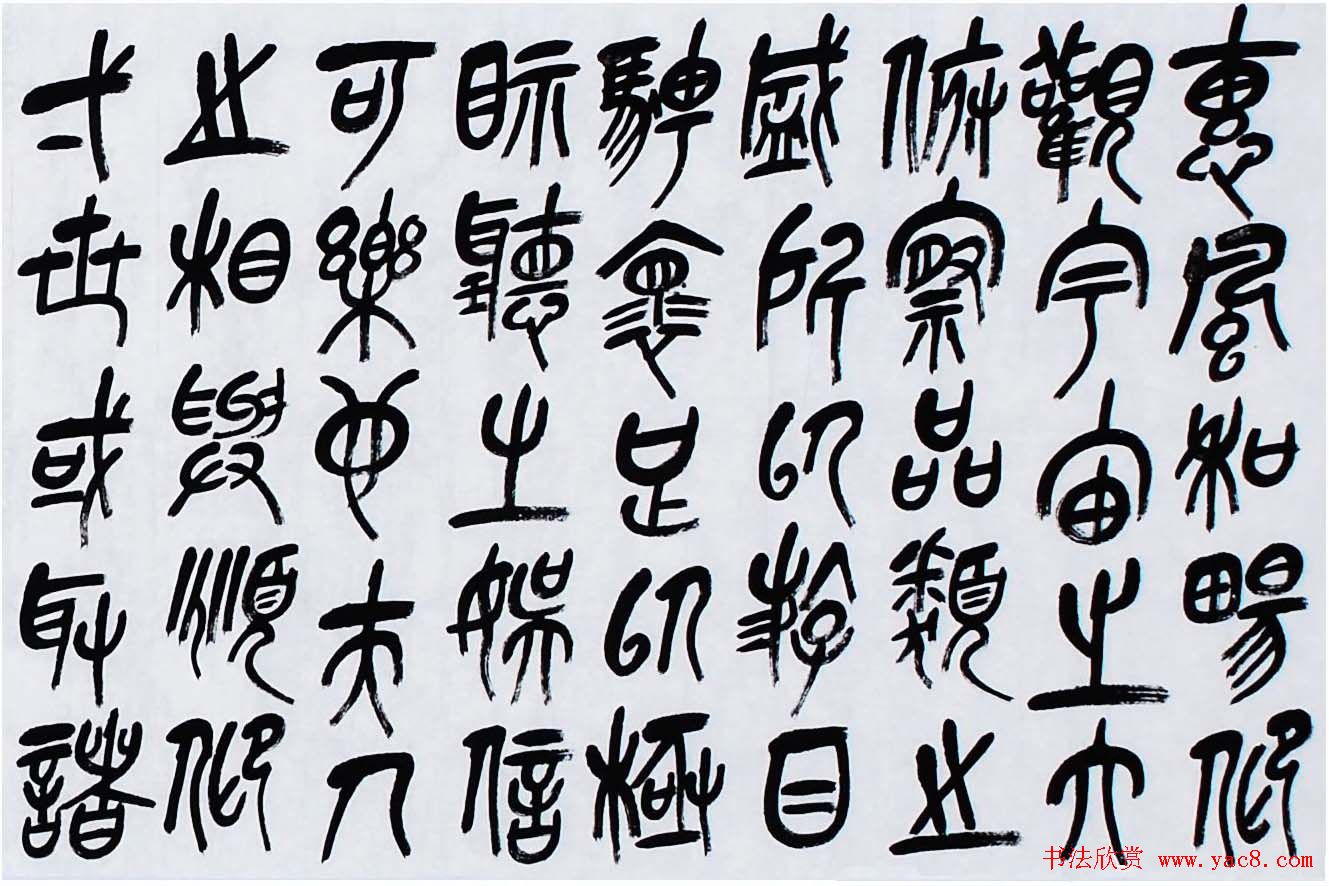 惠風和暢仰
觀宇宙之大
俯察品類之
盛所以游目
騁懷足以極
眎聽之娛信
可樂也夫人
之相與頫仰
弌世或取諸
书法欣赏 www.yac8.com